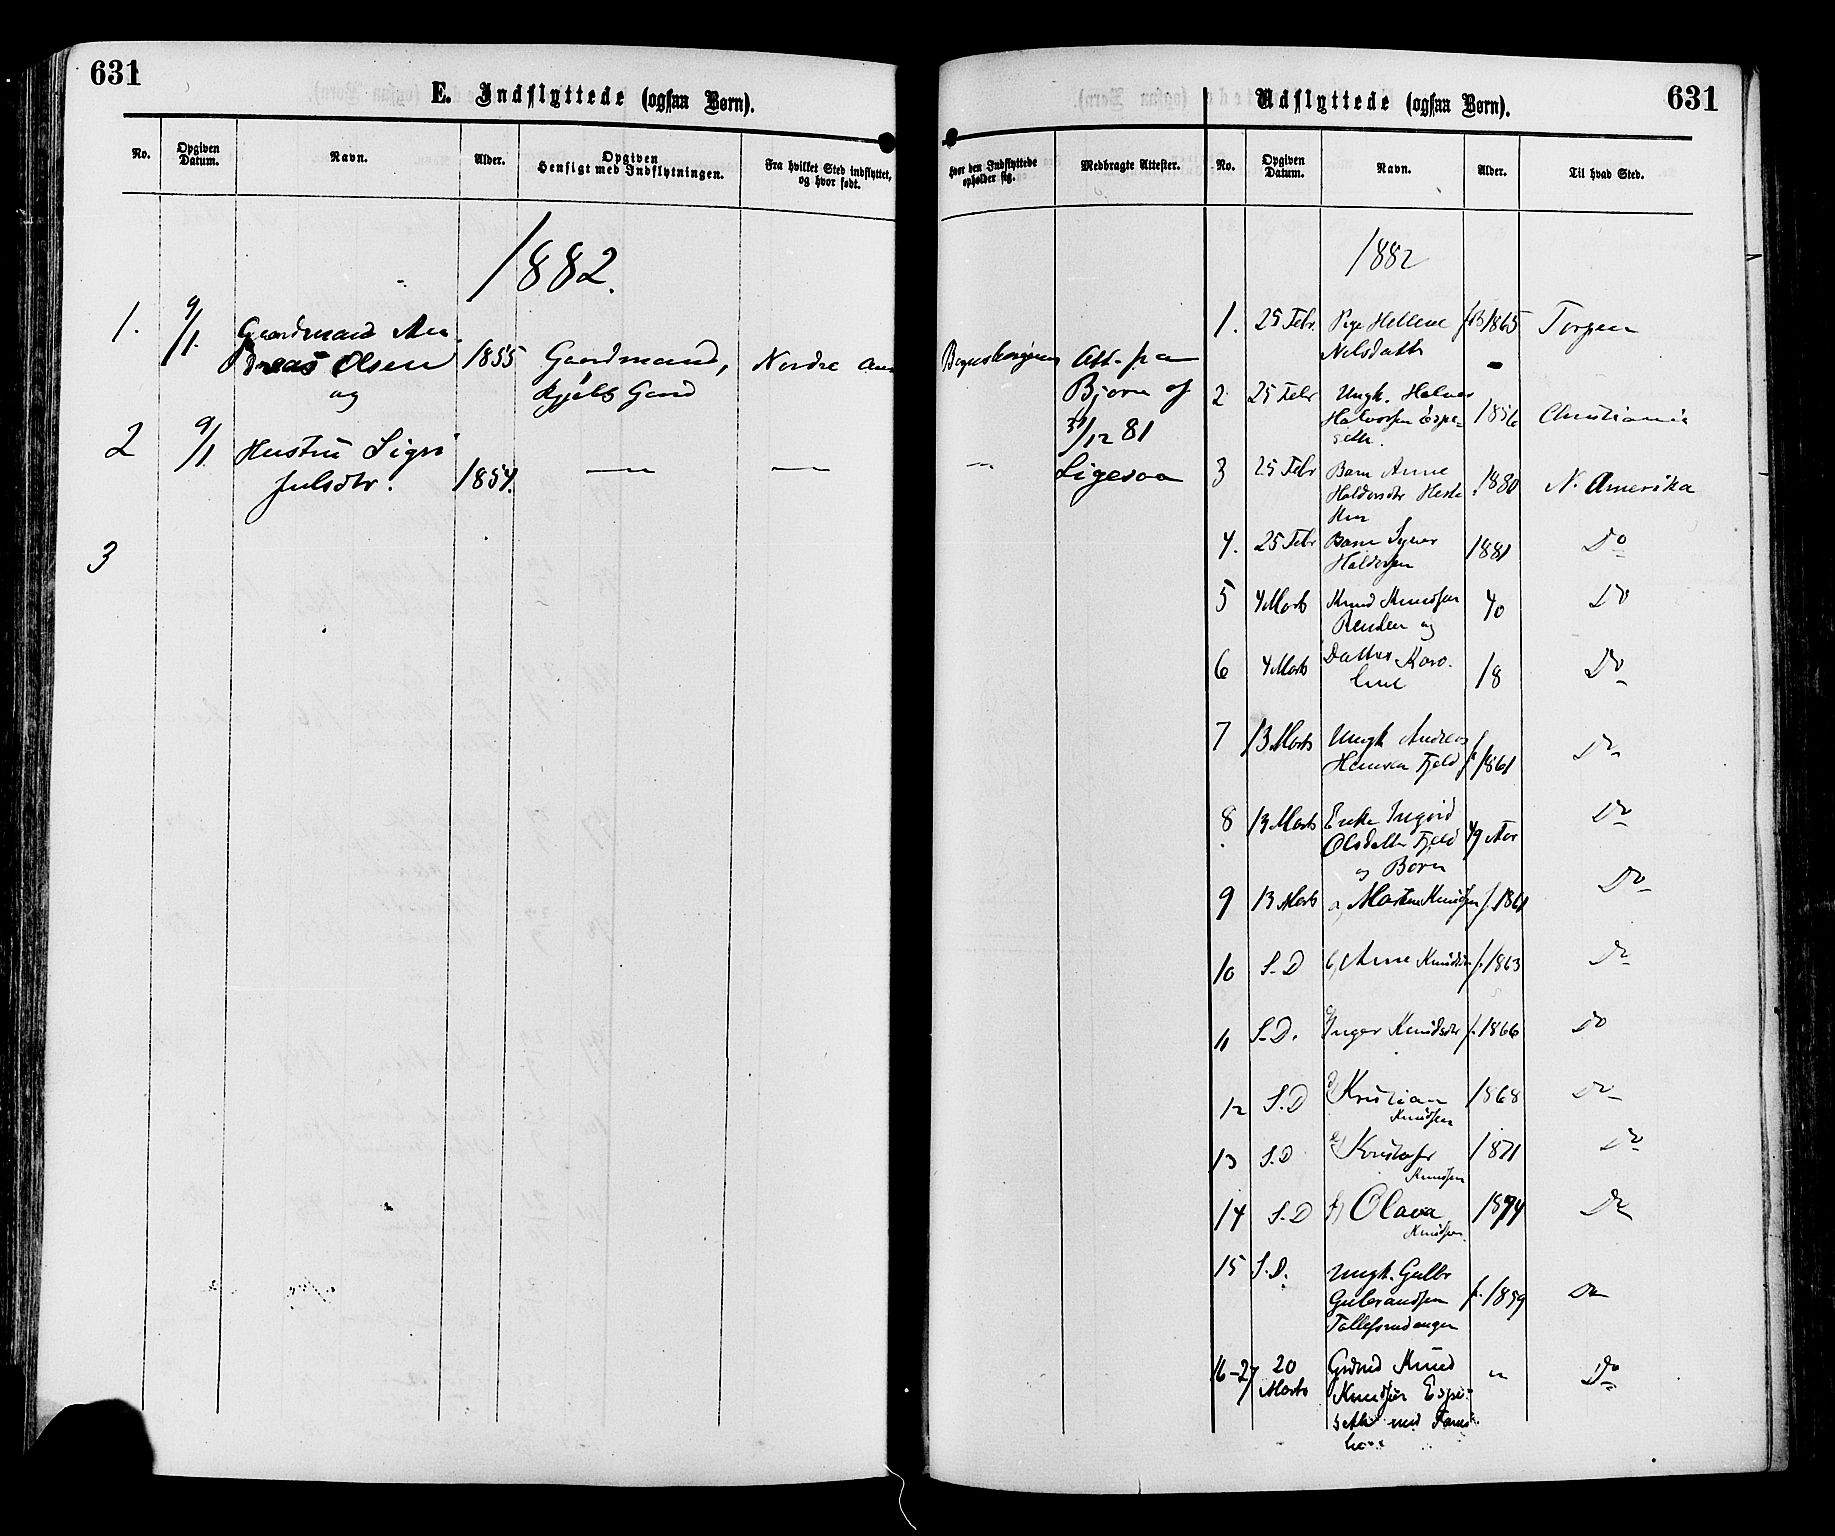 631
E. Indflyttede (ogsaa Børn).
No.
Opgiven
Datum.
Navn.
Alder.
Opgiven
Hensigt med Indflytningen.
Fra hvilket Sted indflyttet,
og hvor født.
1882.
1. 9/1. Gaardmand An-
dreas Olsen 1855 Gaardmand, Nordre
og
Gaard
2 9/1. Hustru Sigri
Julsdtr. 1854. — —
3
Udflyttede (ogsaa Børn).
631
Hvor den Indflyttede
opholder sig.
Medbragte Attester.
No.
Opgiven
Datum.
Navn.
Alder.
Til hvad Sted.
Att. fra
Bjørn af
31/12 81
— Ligesaa
1882
1. 25 Febr. Pige Hellene 1865 Torpen
Nilsdatter
2 25 Febr Ungk. Halvor
Halvorsen Espe- 1856 Christiania
seth.
3 25 Febr Barn Anne
Haldorsdtr 1880 N. Amerika
4. 25 Febr Barn
Haldorsen 1881 Do
5 4 Marts Knud Knudsen 40 Do
og
6 4 Marts Datter Karo-
line 18 Do
7 13 Marts Ungk Andreas
Hansen Fjeld f 1861 Do
8 13 Marts Enke Ingrid
Olsdatter Fjeld 49 Aar Do
og Børn
9 13 Marts a, Morten Knudsen f. 1861 Do
10 S. D b, Anne Knudsdtr f. 1863 Do
11 S. D. c, Inger Knudsdtr f. 1866 Do
12 S. D d, Kristian 1868 Do
Knudsen
13 S. D e, Kristofer 1871 Do
Knudsen
14 S. D f) Olava 1874 Do
Knudsen
15 S. D. Ungk. Gulbr
Gulbrandsen f. 1859 Do
Tollefsrudengen
16-27 20 Grdmd Knud " Do
Marts Knudsen Espe-
seth med Fami-